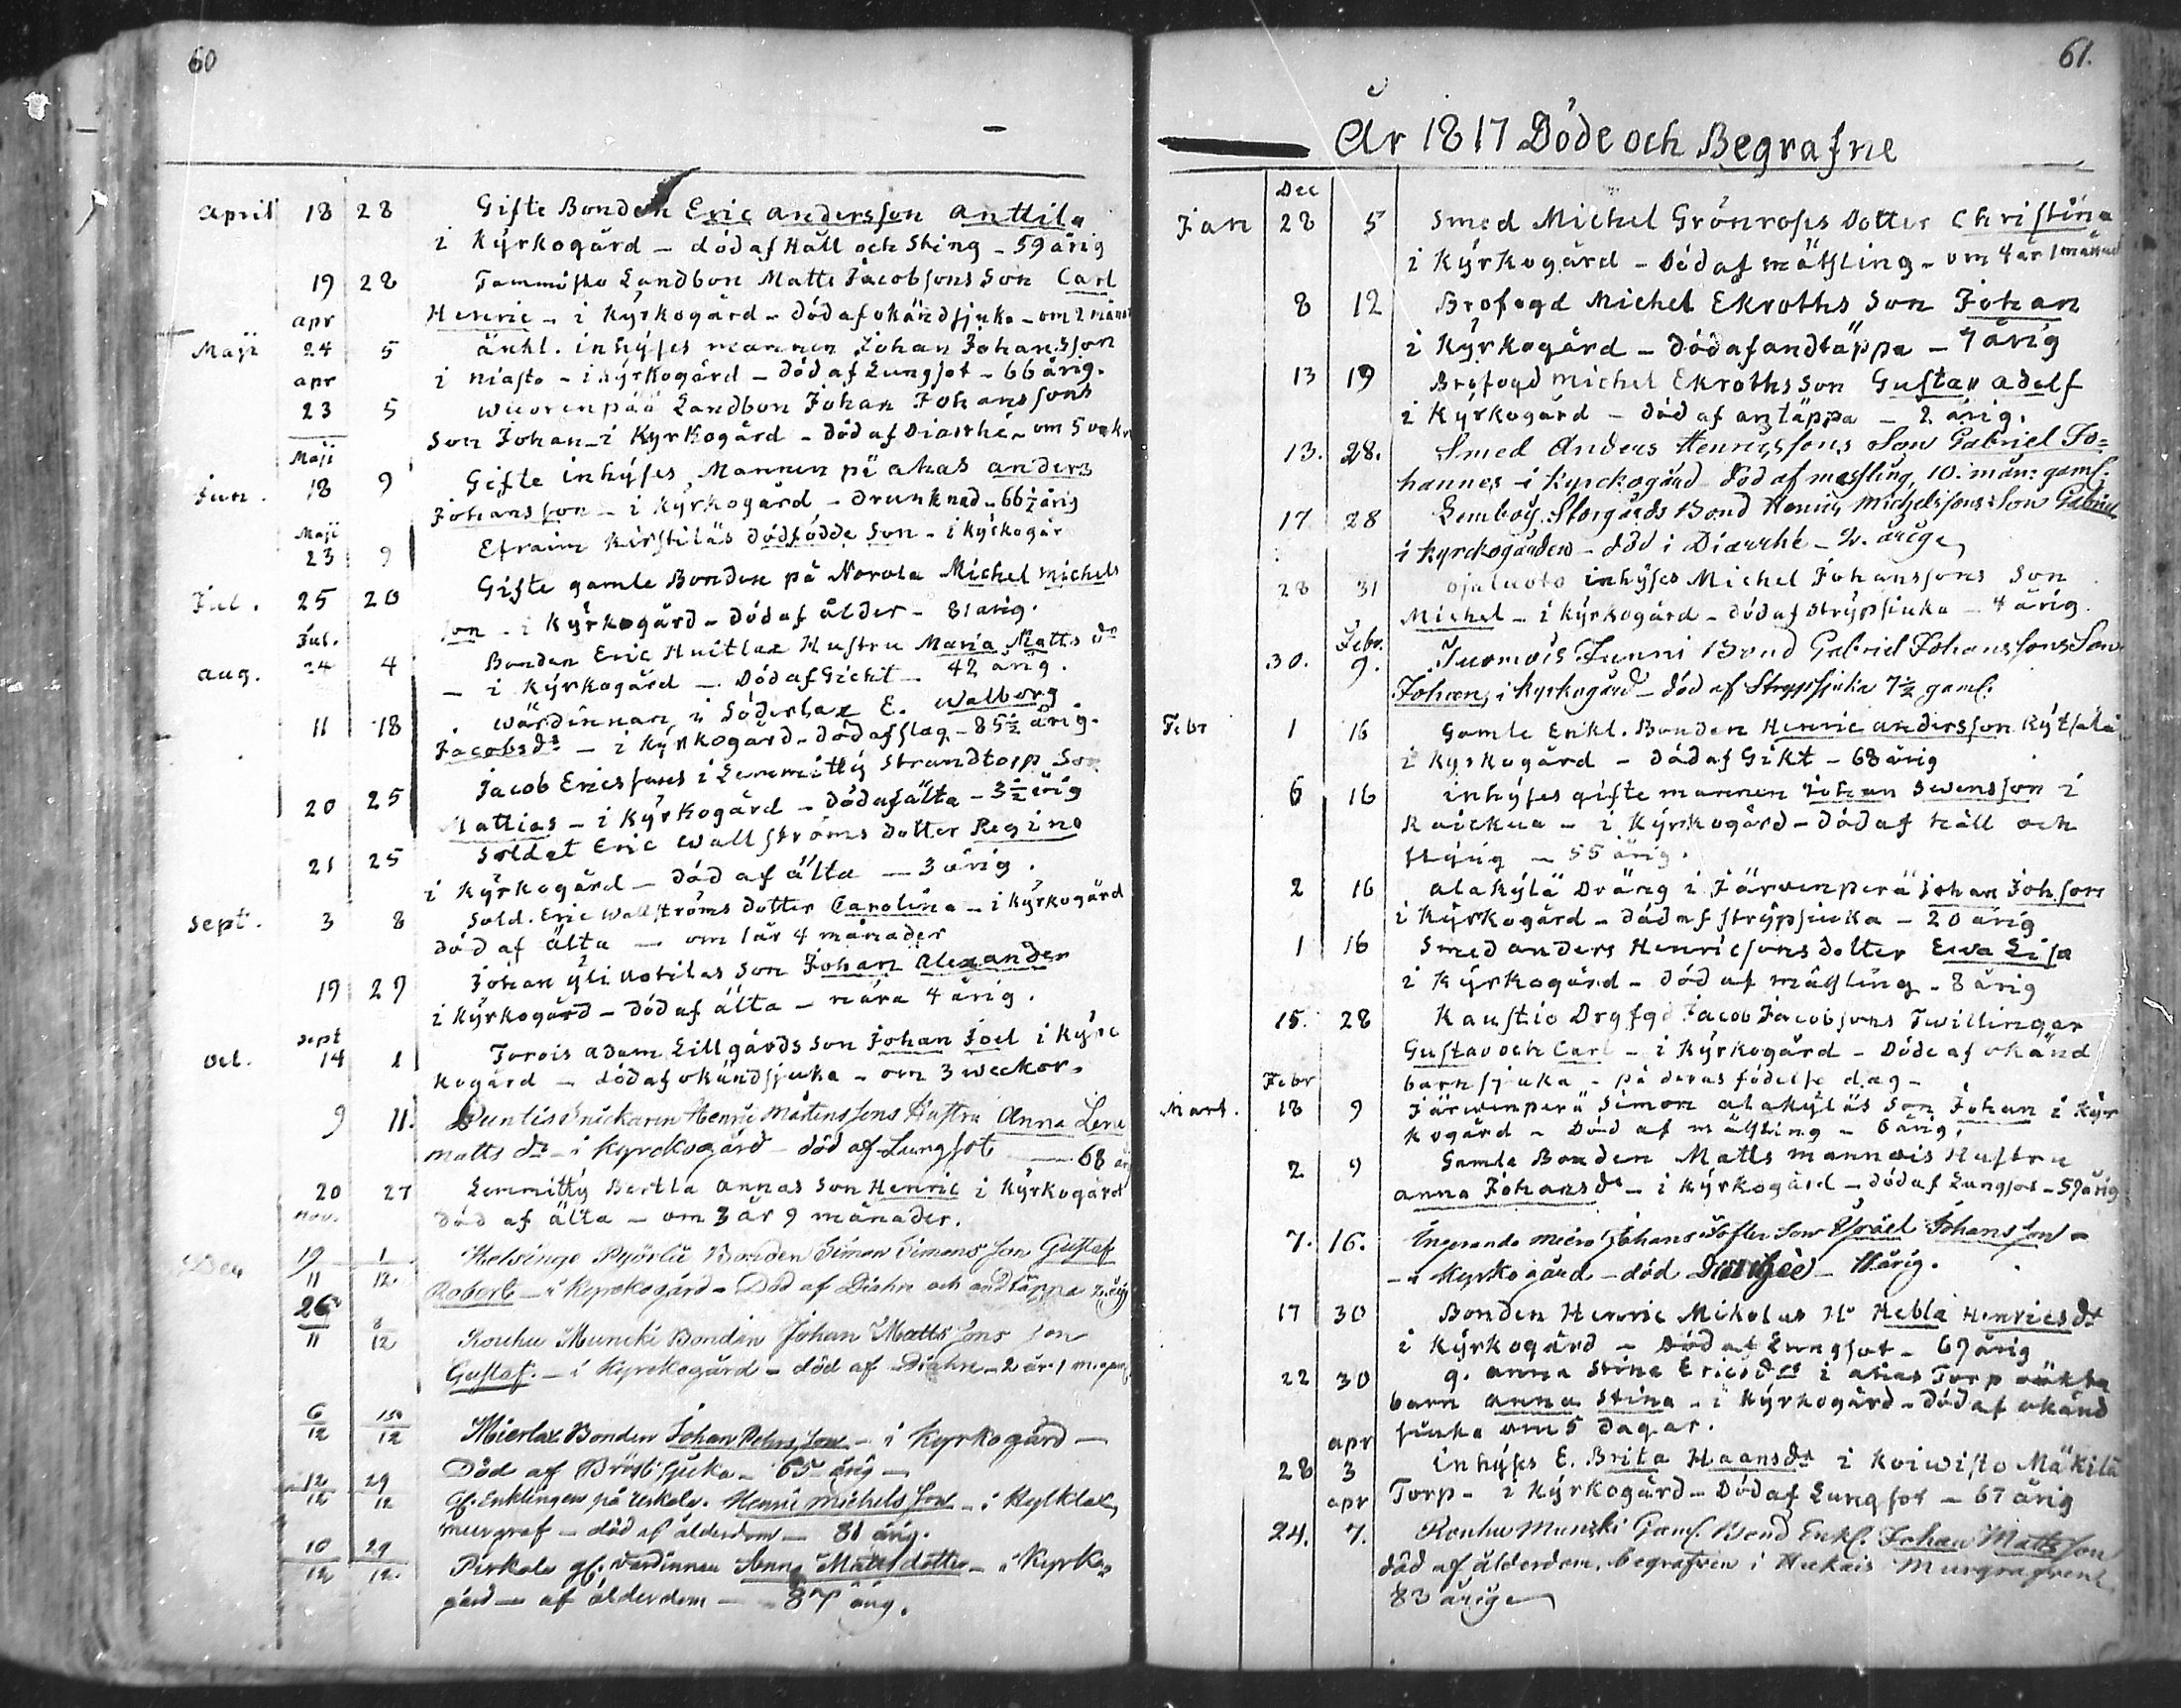 60
April 18 28 Gifte Bonden Eric Andersson Anttila
i Kyrkogård - död af Håll och Sting - 59 årig
19 28 Tammisto Landbon Matts Jacobssons Son Carl
Henric - i Kyrkogård - död af okänd sjuka - om 2 månad
apr
Maji 24 5 änkl. inhyses mannen Johan Johansson
i Niasto - i kyrkogård - död af Lungsot - 66 årig.
apr
23 5 Wuorenpää Landbon Johan Johanssons
Son Johan - i Kyrkogård - död af Diarrhé - om 5 wekor
Maji
Jun. 18 9 Gifte inhyses Mannen på Ahas Anders
Johansson - i Kyrkogård - drunknad - 66 1/2 årig
Maji
23 9 Efraim Kirstiläs dödfödde Son - i kyrkogår
Jul. 25 20 Gifte gamle Bonden på Norola Michel Michels
son - i Kyrkogård - död af ålder - 81 årig.
Jul.
Aug. 24 4 Bonden Eric Huitlax Hustru Maria Matts dr
- i Kyrkogård - Död af Gicht - 42 årig.
11 18 Wärdinnan i Söderlax E. Walborg
Jacobsdr - i Kyrkogård - död af slag - 85 1/2 årig.
20 25 Jacob Ericssons i Lemmitty Strandtorp Son
Mattias - i Kyrkogård - död af älta - 3 1/2 årig
21 25 Soldat Eric Wallströms dotter Regina
i Kyrkogård - död af älta - 3 årig.
Sept. 3 8 Sold. Eric Wallströms dotter Carolina - i kyrkogård
död af älta - om 1 år 4 månader
19 29 Johan Yli Uotilas Son Johan Alexander
i Kyrkogård - död af älta - nära 4 årig.
Sept
Oct. 14 1 Torois Adam Lillgårds Son Johan Joel i Kyrc
kogård - död af okänd sjuka - om 3 weckor.
9 11. Snickaren Henric Mårtenssons Hustru Anna Lena
Matts dr - i Kyrckogård - död af Lungsot - 68 år
20 27 Lemmitty Bertla Annas Son Henric i Kyrkogård
död af älta - om 3 år 9 månader.
nov.
Dec 19/11 1/12. Helsinge Pyörlii Bonden Simon Simonsson Gustaf
Robert - i Kyrckogård - Död af Diahre och andtäppa 2 årig
26/11 8/12 Rouhu Muncki Bonden Johan Mattssons son
Gustaf. - i Kyrckogård - död af Diahre - 2 år 1 m.
6/12 15/12 Mierlax Bonden Johan Johansson - i Kyrkogård -
Död af Bröstsjuka - 65 årig -
12/12 29/12 Gf. Enklingen på Henric Michelsson - i
murgraf - död af ålderdom - 81 årig.
10/12 29/12. Pirkola gf. Värdinnan Anna Mattsdotter - i Kyrko
gård - af ålderdom - 87 årig.
61.
År 1817 Döde och Begrafne
Dec
Jan 28 5 Smed Michel Grönroos Dotter Christina
i Kyrkogård - Död af mässling - om 4 år 1 månad
8 12 Brofogd Michel Ekroths Son Johan
i Kyrkogård - död af andtäppa - 7 årig
13 19 Brofogd Michel Ekroths Son Gustav Adolf
i Kyrkogård - död af antäppa - 2 årig.
13. 28. Smed Anders Henrikssons Son Gabriel Jo=
hannes i kyrckogård död af mässling, 10. mån: gaml.
17 28 Lemböis Storgårds Bond Henric Michelssons Son Gabriel
i kyrckogården - död i Diarrhé - 2. årige
28 31 Ojaluoto inhyses Michel Johanssons Son
Michel - i kyrkogård - död af strypsjuka - 4 årig.
Febr.
30. 9. Tuomois Junni Bond Gabriel Johanssons Son
Johan, i kyrkogård - död af Strypsjuka 7 1/2 gaml.
Febr 1 16 Gamle Enkl. Bonden Henric Andersson Kytsälä
i Kyrkogård - död af Gikt - 68 årig
6 16 inhyses gifte mannen Johan Swensson i
Raickua - i Kyrkogård - död af håll och
styng - 55 årig.
2 16 Alakylä Dräng i Järwenperä Johan Johsson
i Kyrkogård - död af strypsjuka - 20 årig
1 16 Smed Anders Henricsons dotter Ewa Lisa
i Kyrkogård - död af mässling - 8 årig
15. 28 Kaustio Drgfgd Jacob Jacobsons Twillingar
Gustav och Carl - i Kyrkogård - Döde af okänd
barnsjuka - på deras födelse dag -
Febr
Mart. 18 9 Järwenperä Simon Alakyläs Son Johan i Kyr
kogård - Död af mässling - 6 årig,
2 9 Gamla Bonden Matts Mannois Hustru
Anna Johansdr - i Kyrkogård - död af Lungsot - 59 årig
7. 16. Johans Son Israel Johansson -
- i Kyrkogård - död Diarrhée - 11 årig.
17 30 Bonden Henric Mikolas Hu Hebla Henricsdr
i Kyrkogård - Död af Lungsot - 69 årig
22 30 g. Anna Stina Ericsdrs i Ahas Torp oäkta
barn Anna Stina - i Kyrkogård - död af okänd
sjuka om 5 dagar.
apr
28 3 Inhyses E. Brita Haansdr i Koiwisto Mäkilä
Torp - i Kyrkogård - Död af Lungsot - 67 årig
apr
24. 7. Rouhu Munzki Gaml. Bond Enkl. Johan Mattsson
död af ålderdom, begrafven i Hukais Murgrafvene
83 årige